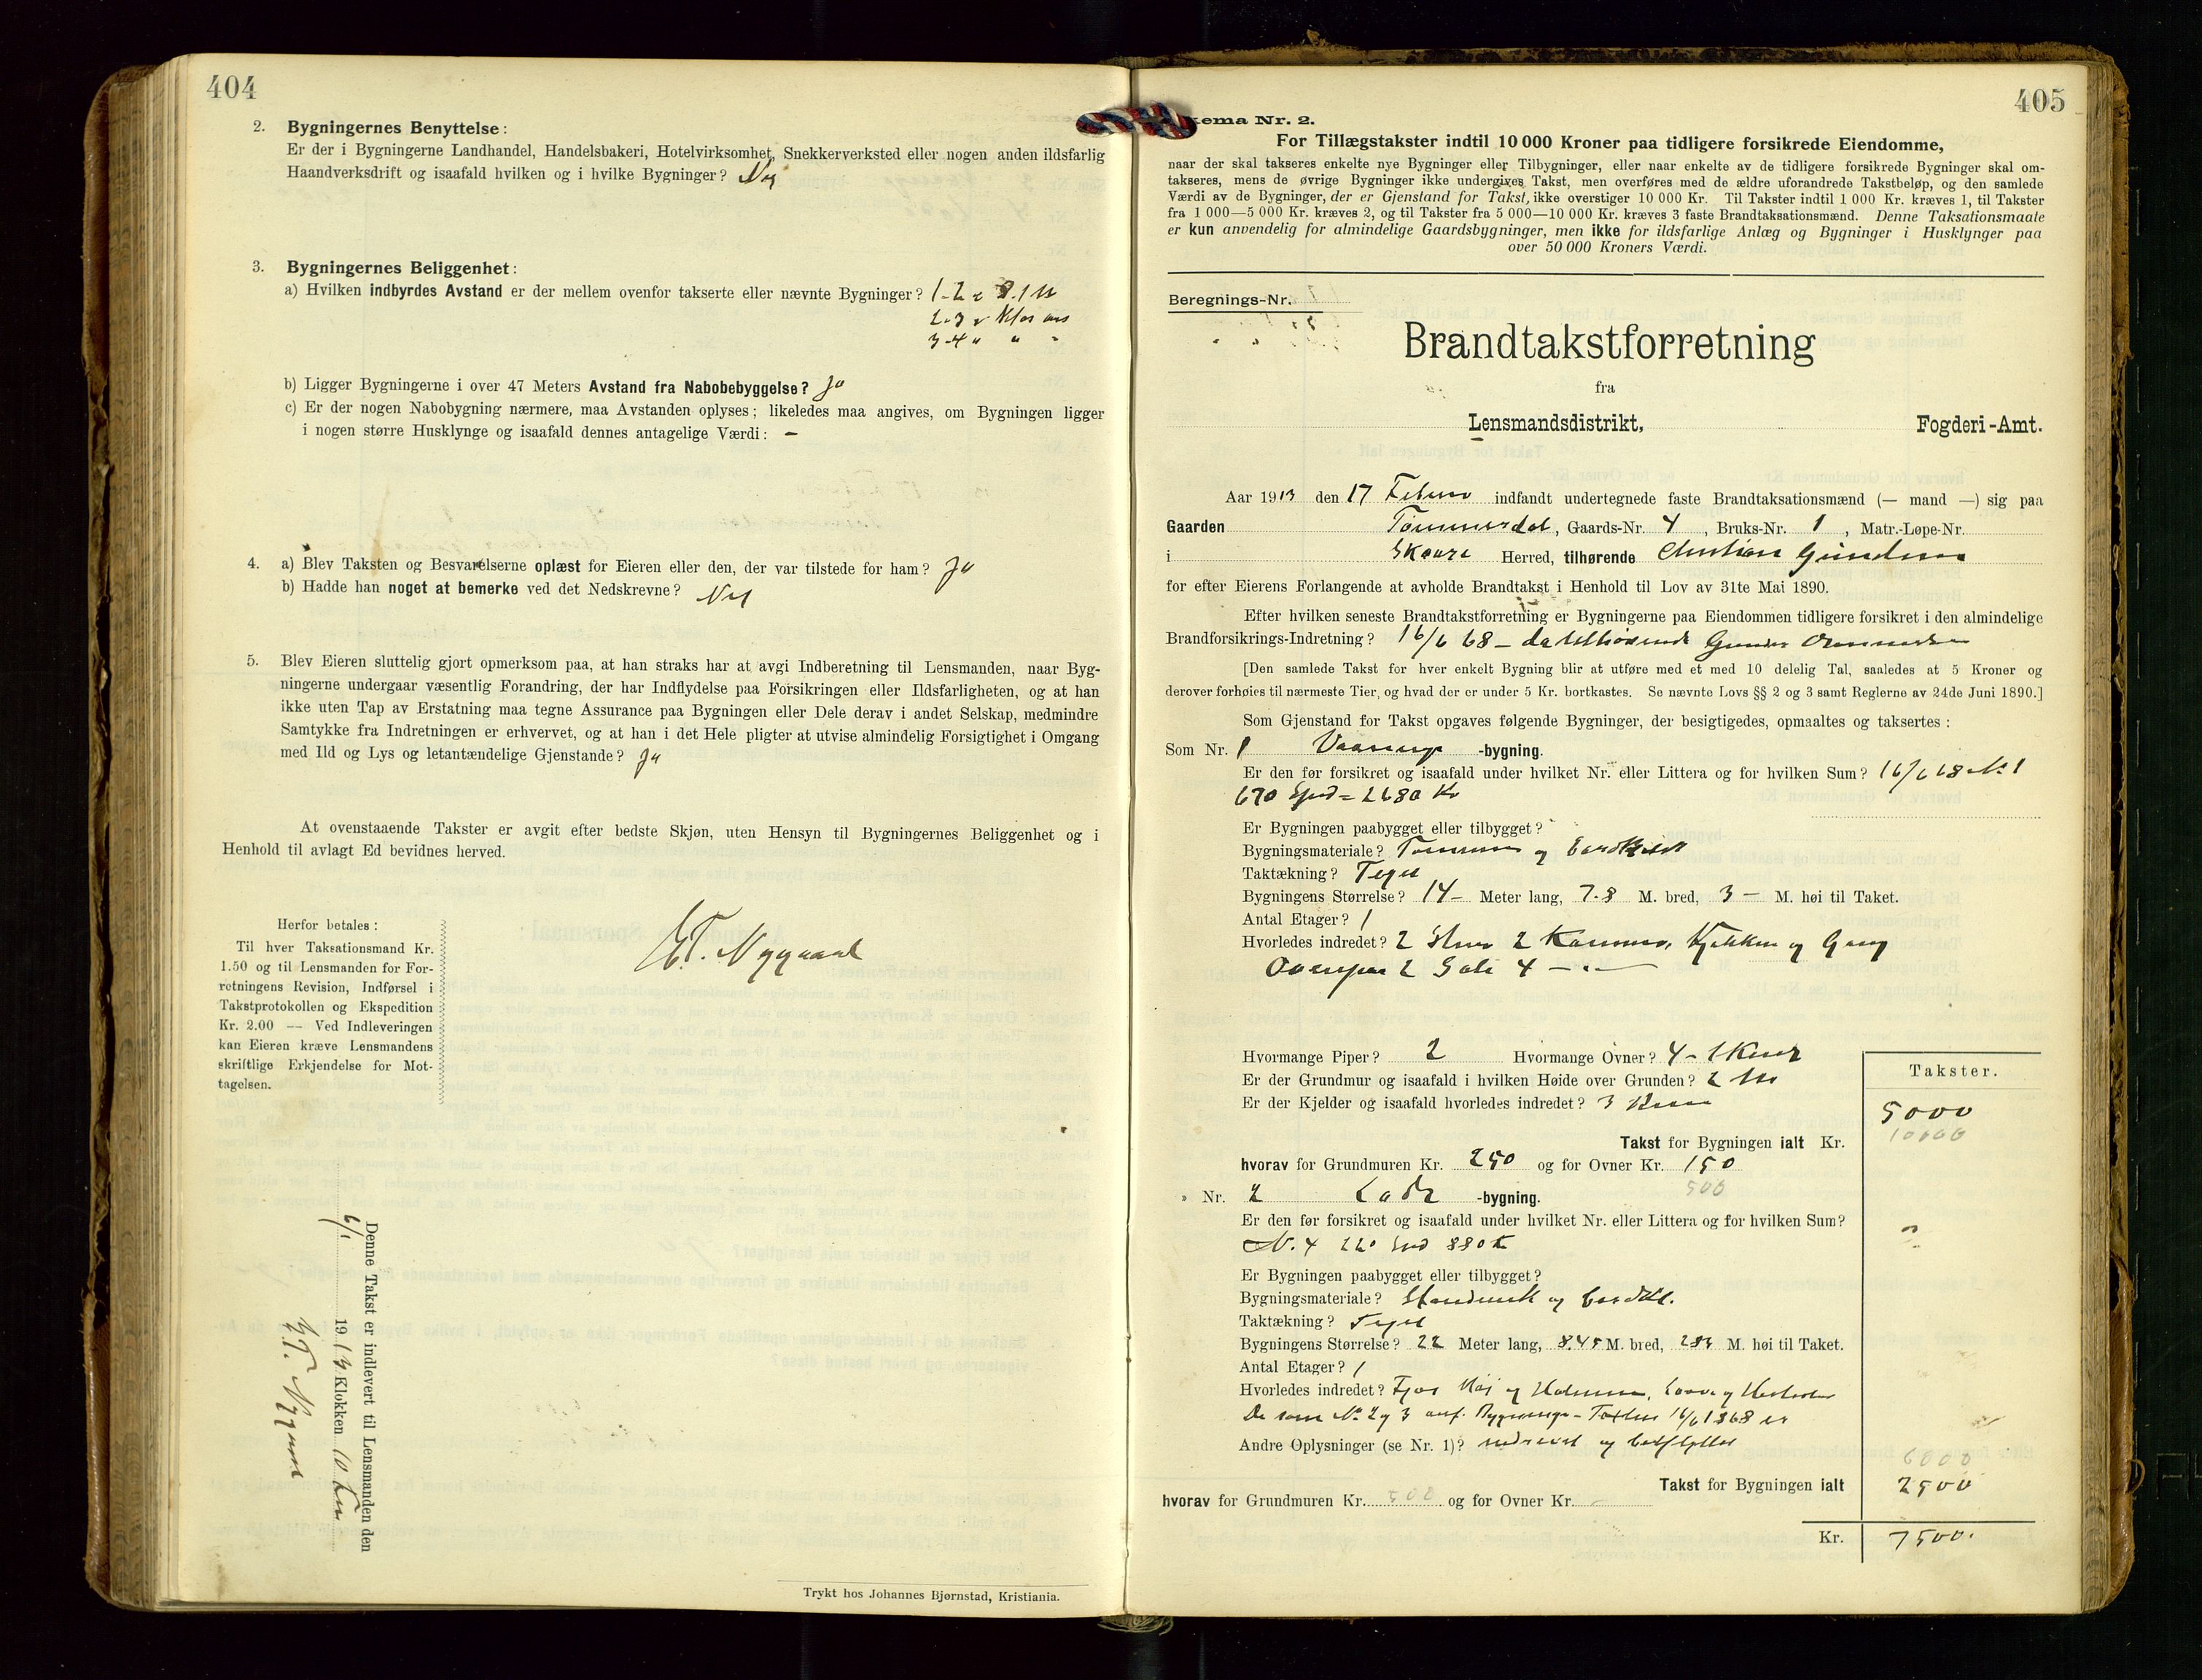 404
2. Bygningernes Benyttelse:
Er der i Bygningerne Landhandel, Handelsbakeri, Hotelvirksomhet, Snekkerverksted eller nogen anden ildsfarlig
Haandverksdrift og isaafald hvilken og i hvilke Bygninger? Nej
3. Bygningernes Beliggenhet:
a) Hvilken indbyrdes Avstand er der mellem ovenfor takserte eller nævnte Bygninger? 1-2
2-3
3-4 " "
b) Ligger Bygningerne i over 47 Meters Avstand fra Nabobebyggelse? Ja
c) Er der nogen Nabobygning nærmere, maa Avstanden oplyses; likeledes maa angives, om Bygningen ligger
i nogen større Husklynge og isaafald dennes antagelige Værdi: —
4. a) Blev Taksten og Besvarelserne oplæst for Eieren eller den, der var tilstede for ham? Ja
b) Hadde han noget at bemerke ved det Nedskrevne? Nej
5. Blev Eieren sluttelig gjort opmerksom paa, at han straks har at avgi Indberetning til Lensmanden, naar Byg-
ningerne undergaar væsentlig Forandring, der har Indflydelse paa Forsikringen eller Ildsfarligheten, og at han
ikke uten Tap av Erstatning maa tegne Assurance paa Bygningen eller Dele derav i andet Selskap, medmindre
Samtykke fra Indretningen er erhvervet, og at han i det Hele pligter at utvise almindelig Forsigtighet i Omgang
med Ild og Lys og letantændelige Gjenstande? Ja
At ovenstaaende Takster er avgit efter bedste Skjøn, uten Hensyn til Bygningernes Beliggenhet og i
Henhold til avlagt Ed bevidnes herved.
Nygaard
Herfor betales:
Til hver Taksationsmand Kr.
1.50 og til Lensmanden for For-
retningens Revision, Indførsel i
Takstprotokollen og Ekspedition
Kr. 2.00 — Ved Indleveringen
kan Eieren kræve Lensmandens
skriftlige Erkjendelse for Mot-
tagelsen.
Denne Takst er indlevert til Lensmanden den
6/1 1913 Klokken 10
Nygaard
Trykt hos Johannes Bjørnstad, Kristiania.
405
kema Nr. 2.
For Tillægstakster indtil 10 000 Kroner paa tidligere forsikrede Eiendomme,
naar der skal takseres enkelte nye Bygninger eller Tilbygninger, eller naar enkelte av de tidligere forsikrede Bygninger skal om-
takseres, mens de øvrige Bygninger ikke undergives Takst, men overføres med de ældre uforandrede Takstbeløp, og den samlede
Værdi av de Bygninger, der er Gjenstand for Takst, ikke overstiger 10 000 Kr. Til Takster indtil 1 000 Kr. kræves 1, til Takster
fra 1 000—5 000 Kr. kræves 2, og til Takster fra 5 000—10 000 Kr. kræves 3 faste Brandtaksationsmænd. Denne Taksationsmaate
er kun anvendelig for almindelige Gaardsbygninger, men ikke for ildsfarlige Anlæg og Bygninger i Husklynger paa
over 50 000 Kroners Værdi.
Beregnings-Nr.
Brandtakstforretning
fra
Lensmandsdistrikt, Fogderi-Amt.
Aar 1913 den 17 Februar indfandt undertegnede faste Brandtaksationsmænd (— mand —) sig paa
Gaarden Tømmerdal, Gaards-Nr. 4, Bruks-Nr. 1, Matr.-Løpe-Nr.
i Skaare Herred, tilhørende Christian Gundersen
for efter Eierens Forlangende at avholde Brandtakst i Henhold til Lov av 31te Mai 1890.
Efter hvilken seneste Brandtakstforretning er Bygningerne paa Eiendommen tidligere forsikret i den almindelige
Brandforsikrings-Indretning? 16/6 68 – da tilhørende Gunder
[Den samlede Takst for hver enkelt Bygning blir at utføre med et med 10 delelig Tal, saaledes at 5 Kroner og
derover forhøies til nærmeste Tier, og hvad der er under 5 Kr. bortkastes. Se nævnte Lovs §§ 2 og 3 samt Reglerne av 24de Juni 1890.]
Som Gjenstand for Takst opgaves følgende Bygninger, der besigtigedes, opmaaltes og taksertes:
Som Nr. 1 Vaanings -bygning.
Er den før forsikret og isaafald under hvilket Nr. eller Littera og for hvilken Sum? 16/6 68 No 1
670 Spd = 2680 Kr
Er Bygningen paabygget eller tilbygget?
Bygningsmateriale? Tømmer og bordklædt
Taktækning? Tegel
Bygningens Størrelse? 14 — Meter lang, 7.8 M. bred, 3 — M. høi til Taket.
Antal Etager? 1
Hvorledes indredet? 2 Stuer 2 Kammer, Kjøkken og Gang
Ovenpaa 2 Sale 4 — " —
Hvormange Piper? 2 Hvormange Ovner? 4 - 1 Komf
Er der Grundmur og isaafald i hvilken Høide over Grunden? 2 M
Er der Kjelder og isaafald hvorledes indredet? 3 Rum
Takster.
5000
10000
Takst for Bygningen ialt Kr.
hvorav for Grundmuren Kr. 250 og for Ovner Kr. 150
500
" Nr. 2 Lade -bygning.
Er den før forsikret og isaafald under hvilket Nr. eller Littera og for hvilken Sum?
N. 4 220 Spd 880 Kr
Er Bygningen paabygget eller tilbygget?
Bygningsmateriale? Standverk og bordkl.
Taktækning? Tegel
Bygningens Størrelse? 22 Meter lang, 8.45 M. bred, 283 M. høi til Taket.
Antal Etager? 1
Hvorledes indredet?
De som No 2 og 3 anf. Bygninger 16/6 1868 er
Andre Oplysninger (se Nr. 1)? nedrevet og
6000
Takst for Bygningen ialt 2500
hvorav for Grundmuren Kr. 500 og for Ovner Kr. —
Kr. 7500.